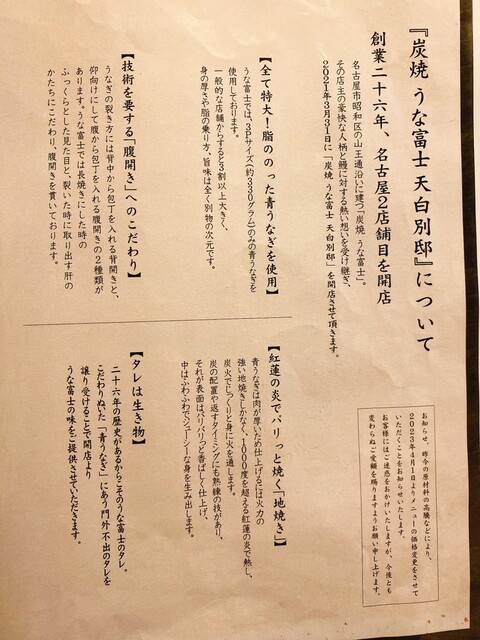 『炭焼 うな富士 天白別邸』について
創業二十六年、名古屋2店舗目を開店
名古屋市昭和区の山王通沿いに建つ「炭焼 うな富士」。
その店主の豪快な人柄と鰻に対する熱い想いを受け継ぎ、
2021年3月31日に「炭焼 うな富士 天白別邸」を開店させて頂きます。
【全て特大!脂ののった青うなぎを使用】
うな富士では、3Pサイズ(約330グラム)のみの青うなぎを
使用しております。
一般的な店舗からすると3割以上大きく、
身の厚さや脂の乗り方、旨味は全く別物の次元です。
【技術を要する「腹開き」へのこだわり】
うなぎの裂き方には背中から包丁を入れる背開きと、
仰向けにして腹から包丁を入れる腹開きの2種類が
あります。うな富士では長焼きにした時の
ふっくらとした見た目と、裂いた時に取り出す肝の
かたちにこだわり、腹開きを貫いております。
【紅蓮の炎でパリっと焼く「地焼き」】
青うなぎは肉が厚いため仕上げるには火力の
強い地焼きしかなく、1000度を超える紅蓮の炎で熱し、
炭火でじっくりと身に火を通します。
炭の配置や返すタイミングにも熟練の技があり、
それが表面はパリパリっと香ばしく仕上げ、
中はふわふわでジューシーな身を生み出します。
【タレは生き物】
二十六年の歴史があるからこそのうな富士のタレ。
こだわりぬいた「青うなぎ」にあう門外不出のタレを
譲り受けることで開店より
うな富士の味をご提供させていただきます。
お知らせ、昨今の原材料の高騰などにより、
2023年4月1日よりメニューの価格変更をさせて
いただくことをお知らせいたします。
お客様にはご迷惑をおかけいたしますが、今後とも
変わらぬご愛顧を賜りますようお願い申し上げます。